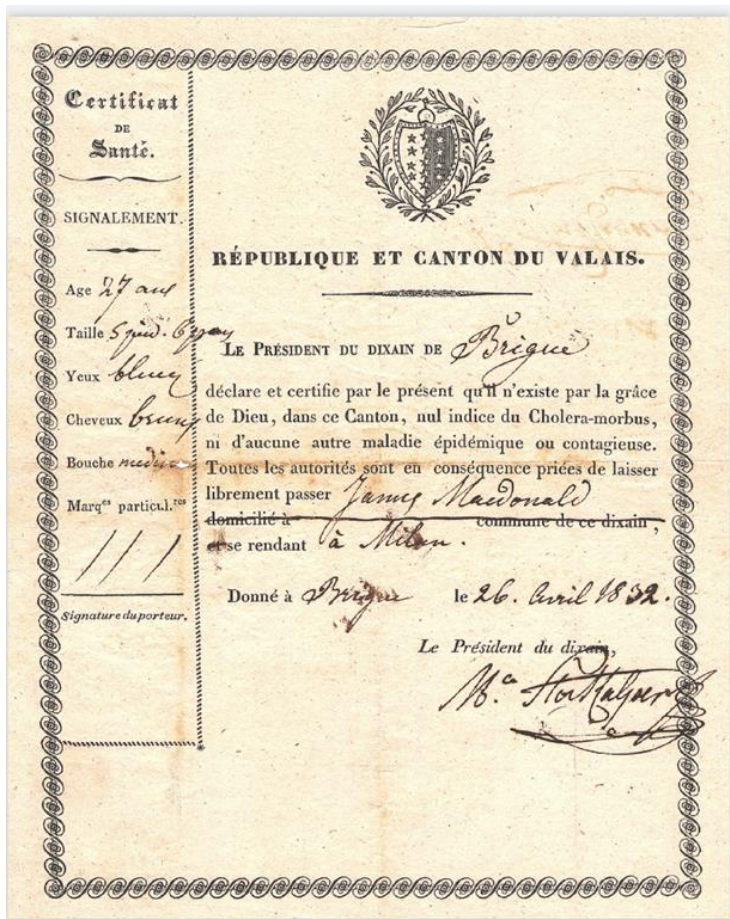 Certificat
DE
Santé.
SIGNALEMENT.
Age 27 ans
Taille 5 pied.
Yeux bleux
Cheveux bruns
Bouche
Marq.es particul.res
Signature du porteur.
RÉPUBLIQUE ET CANTON DU VALAIS.
LE PRÉSIDENT DU DIXAIN DE Brigue
déclare et certifie par le présent qu'il n'existe par la grâce
de Dieu, dans ce Canton, nul indice du Cholera-morbus,
ni d'aucune autre maladie épidémique ou contagieuse.
Toutes les autorités sont en conséquence priées de laisser
librement passer James Macdonald
domicilié à commune de ce dixain,
et se rendant à Milan.
Donné à Brigue le 26. Avril 1832.
Le Président du dixain,